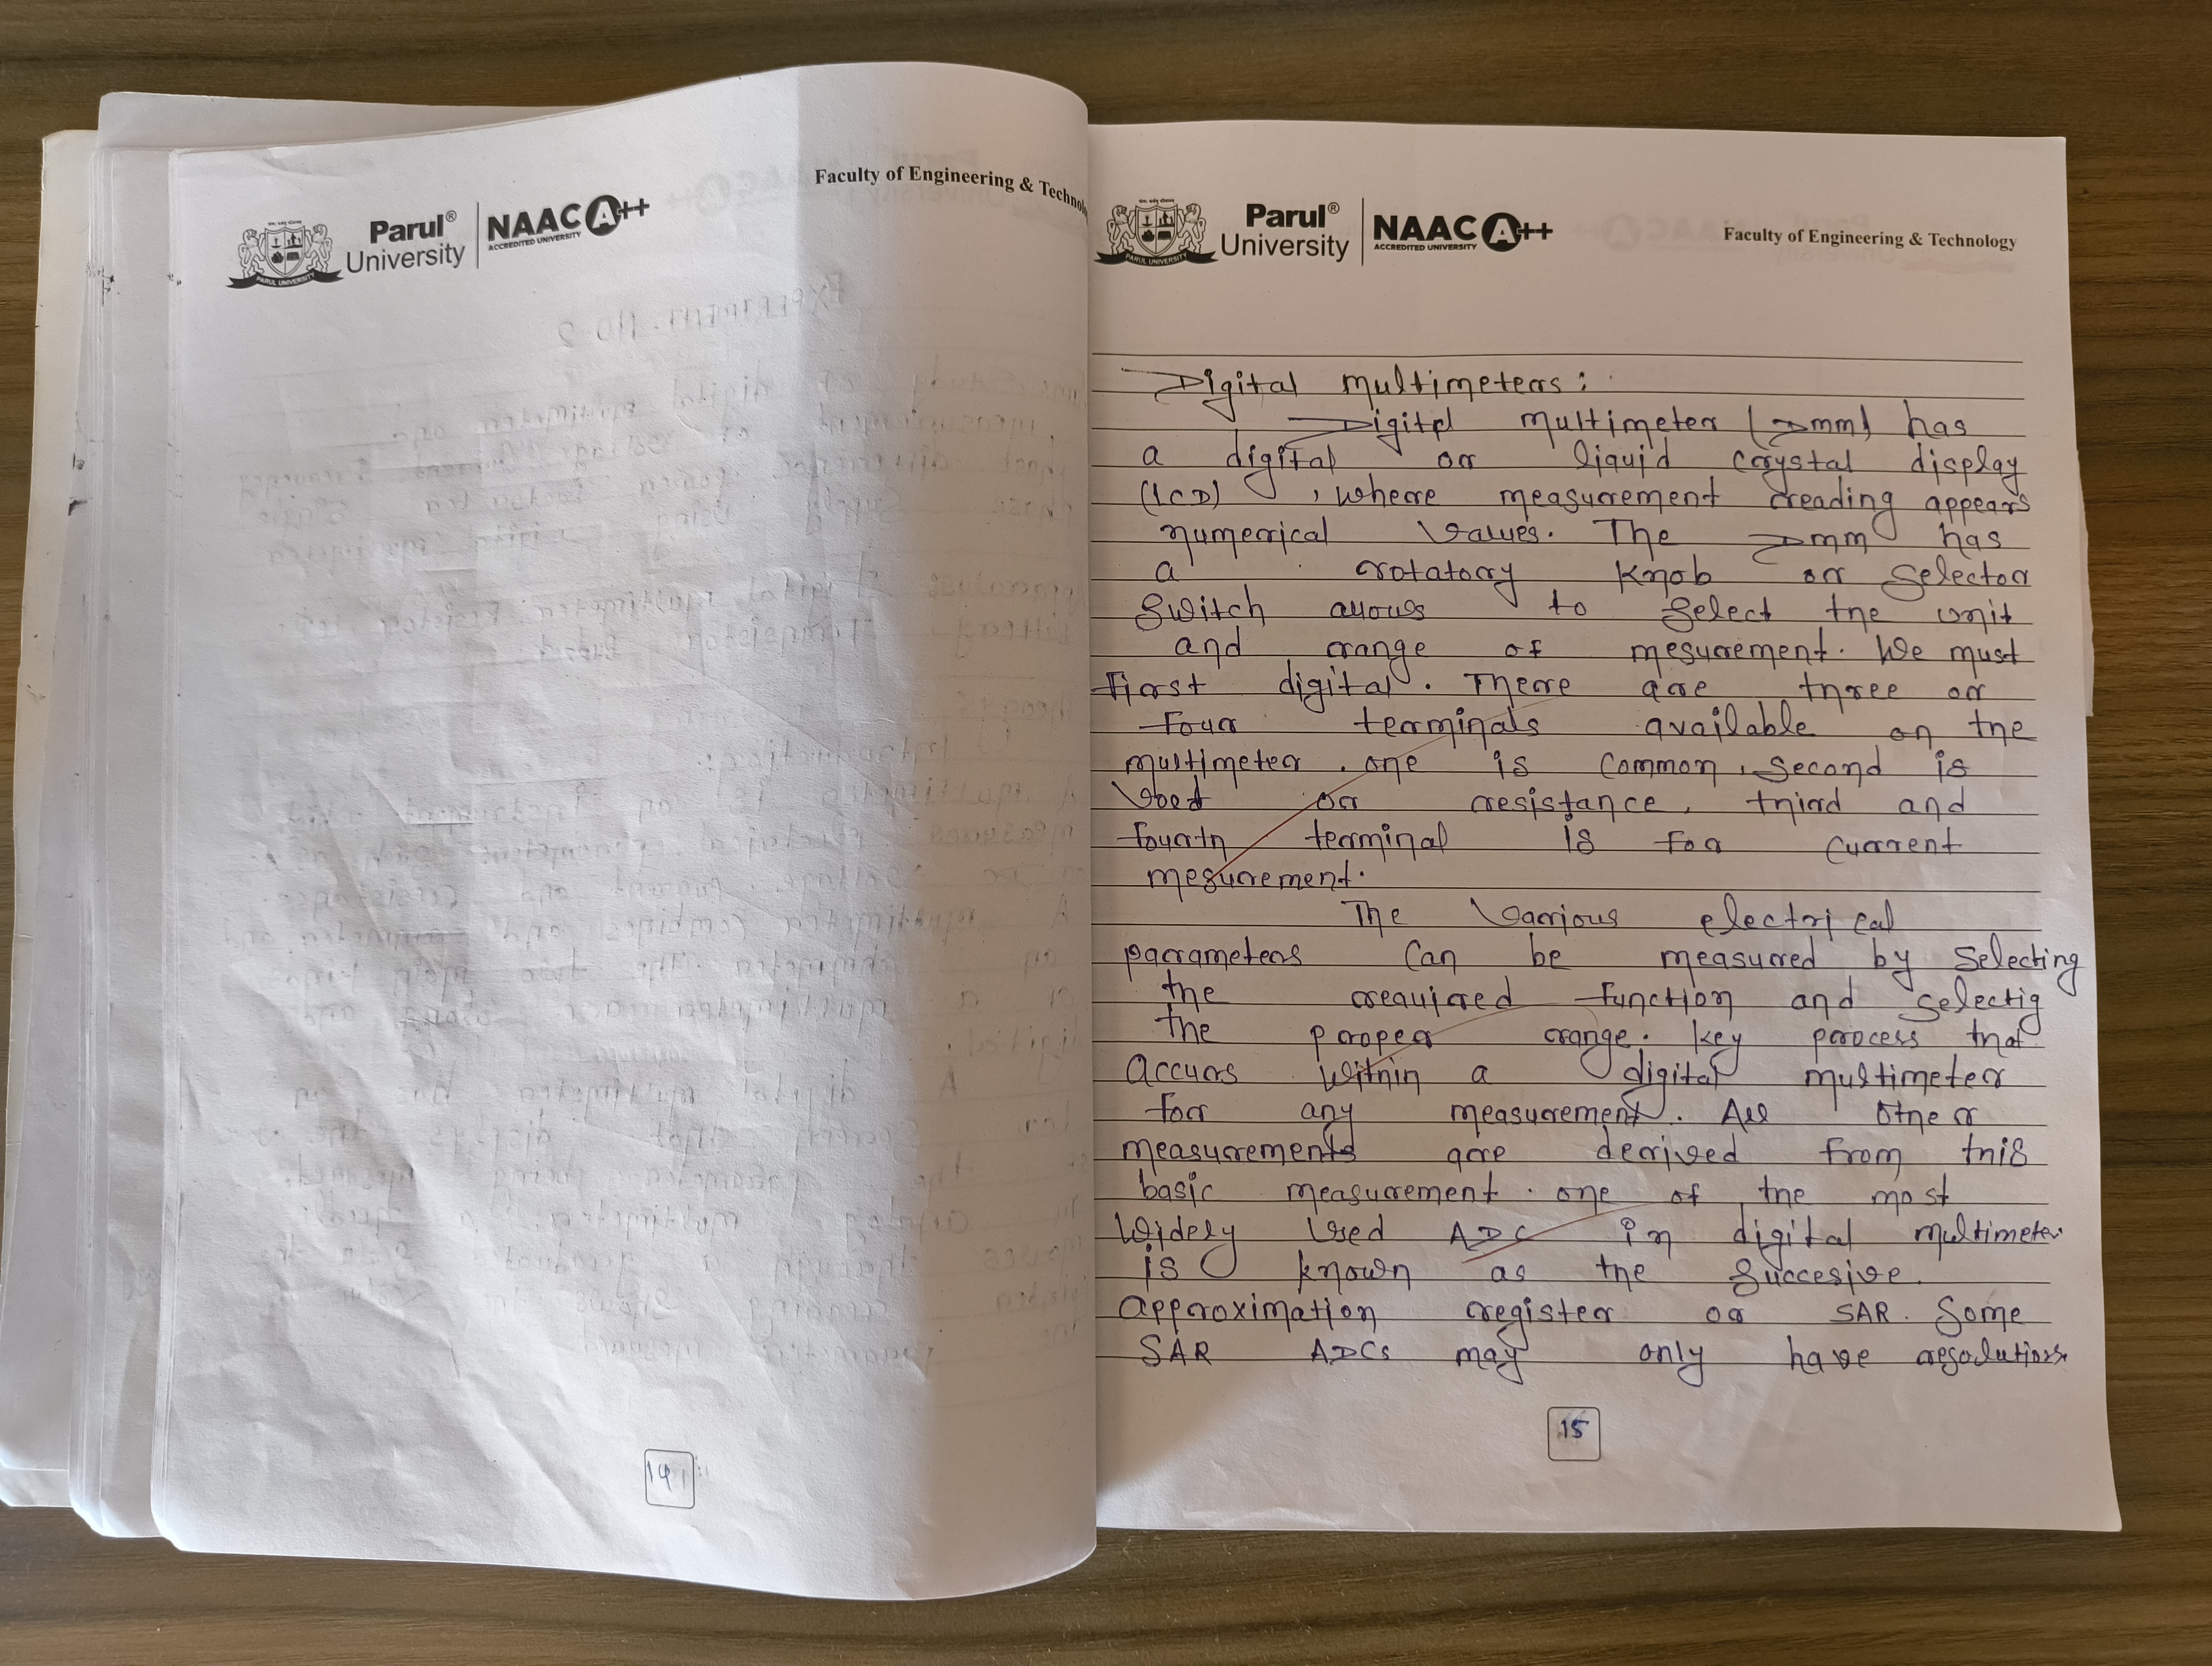 Faculty of Engineering & Technolo
Parul® University
NAAC A++
ACCREDITED UNIVERSITY
PARUL UNIVERSITY
14
Parul® University
NAAC A++
ACCREDITED UNIVERSITY
PARUL UNIVERSITY
Faculty of Engineering & Technology
Digital multimeters:
Digital multimeter (DMM) has
a digital or liquid crystal display
(LCD), where measurement reading appears
numerical values. The DMM has
a rotatory knob or selector
switch allows to select the unit
and range of mesurement. We must
first digital. There are three or
four terminals available on the
multimeter. one is common, second is
used or resistance, third and
fourth terminal is for current
mesurement.
The various electrical
parameters can be measured by selecting
the required function and selectig
the proper range. key process that
accurs within a digital multimeter
for any measurement. All other
measurements are derived from this
basic measurement. one of the most
widely used ADC in digital multimeter
is known as the succesive
approximation register or SAR. Some
SAR ADCs may only have resolutions
15